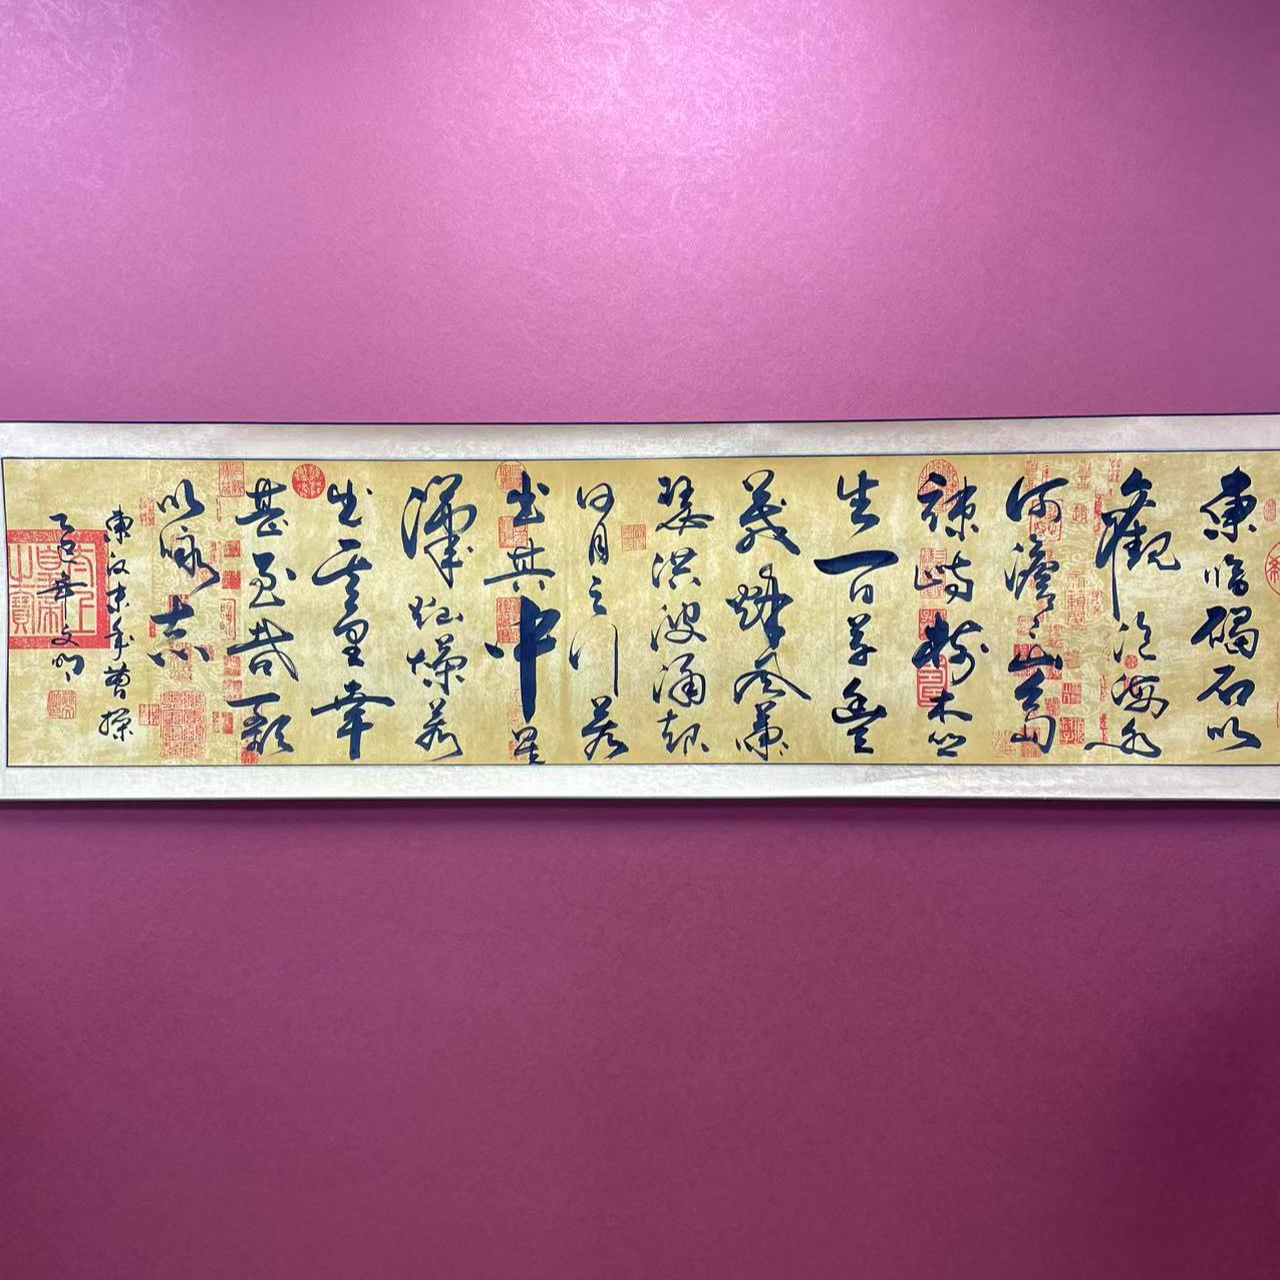 東臨碣石以
觀滄海水
何澹澹山島
竦峙樹木丛
生百草豐
茂秋風蕭
瑟洪波涌起
日月之行若
出其中星
漢灿爛若
出其里幸
甚至哉歌
以詠志
東汉末年曹操